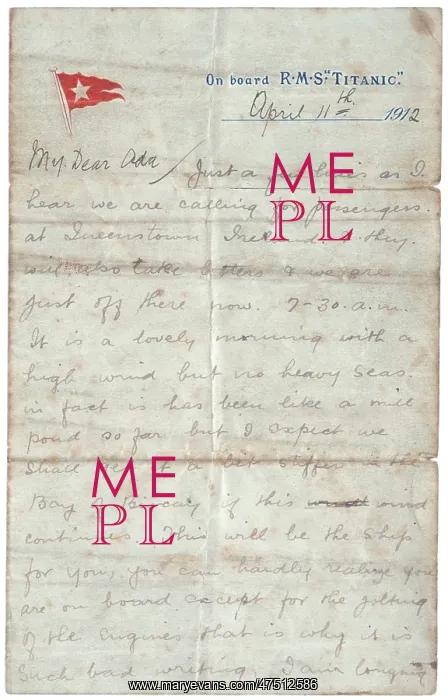 On board R·M·S·"TITANIC."
April 11th 1912
My Dear Ada / Just a lines as I
hear we are calling for passengers.
at Queenstown Ireland & they
will also take letters & we are
just off there now. 7-30. a.m.
It is a lovely morning with a
high wind but no heavy seas.
in fact is has been like a mill
pond so far but I expect we
shall get it a bit stiffer in the
Bay of Biscay if this wind
continues. This will be the ship
for you, you can hardly realize you
are on board except for the jolting
of the engines that is why it is
such bad writing. I am longing
ME
PL
ME
PL
www.maryevans.com/47512586